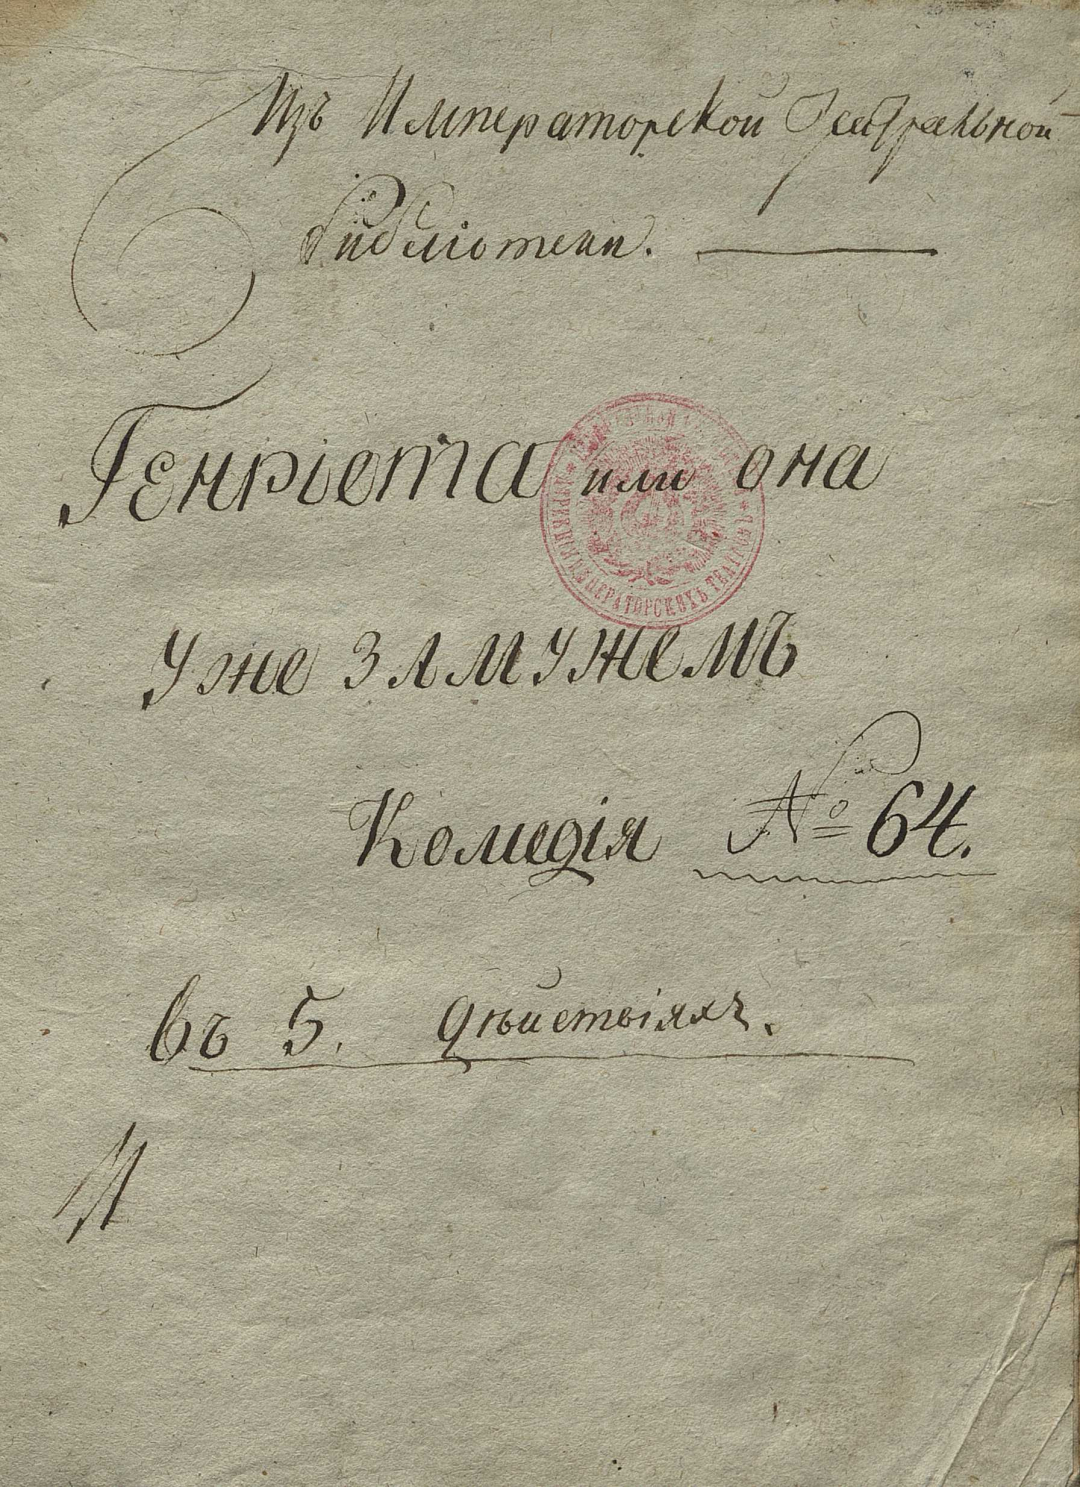 Изъ Императорской Театральной
библіотеки.
Генріета или она
уже замужемъ
Комедія № 64.
въ 5. дѣйствіяхъ.
ИМПЕРАТОРСКИХЪ ТЕАТРОВЪ